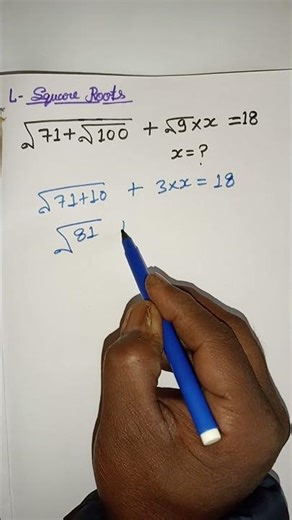 L- Square Roots
√71+√100 + √9 × x = 18
x = ?
√71+10 + 3 × x = 18
√81